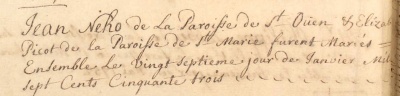 Jean Neho de La Paroisse de St Oüen & Elizab
Picot de la Paroisse de St Marie furent Mariés
Ensemble Le Vingt Septieme jour de Janvier Mil
Sept Cents Cinquante trois